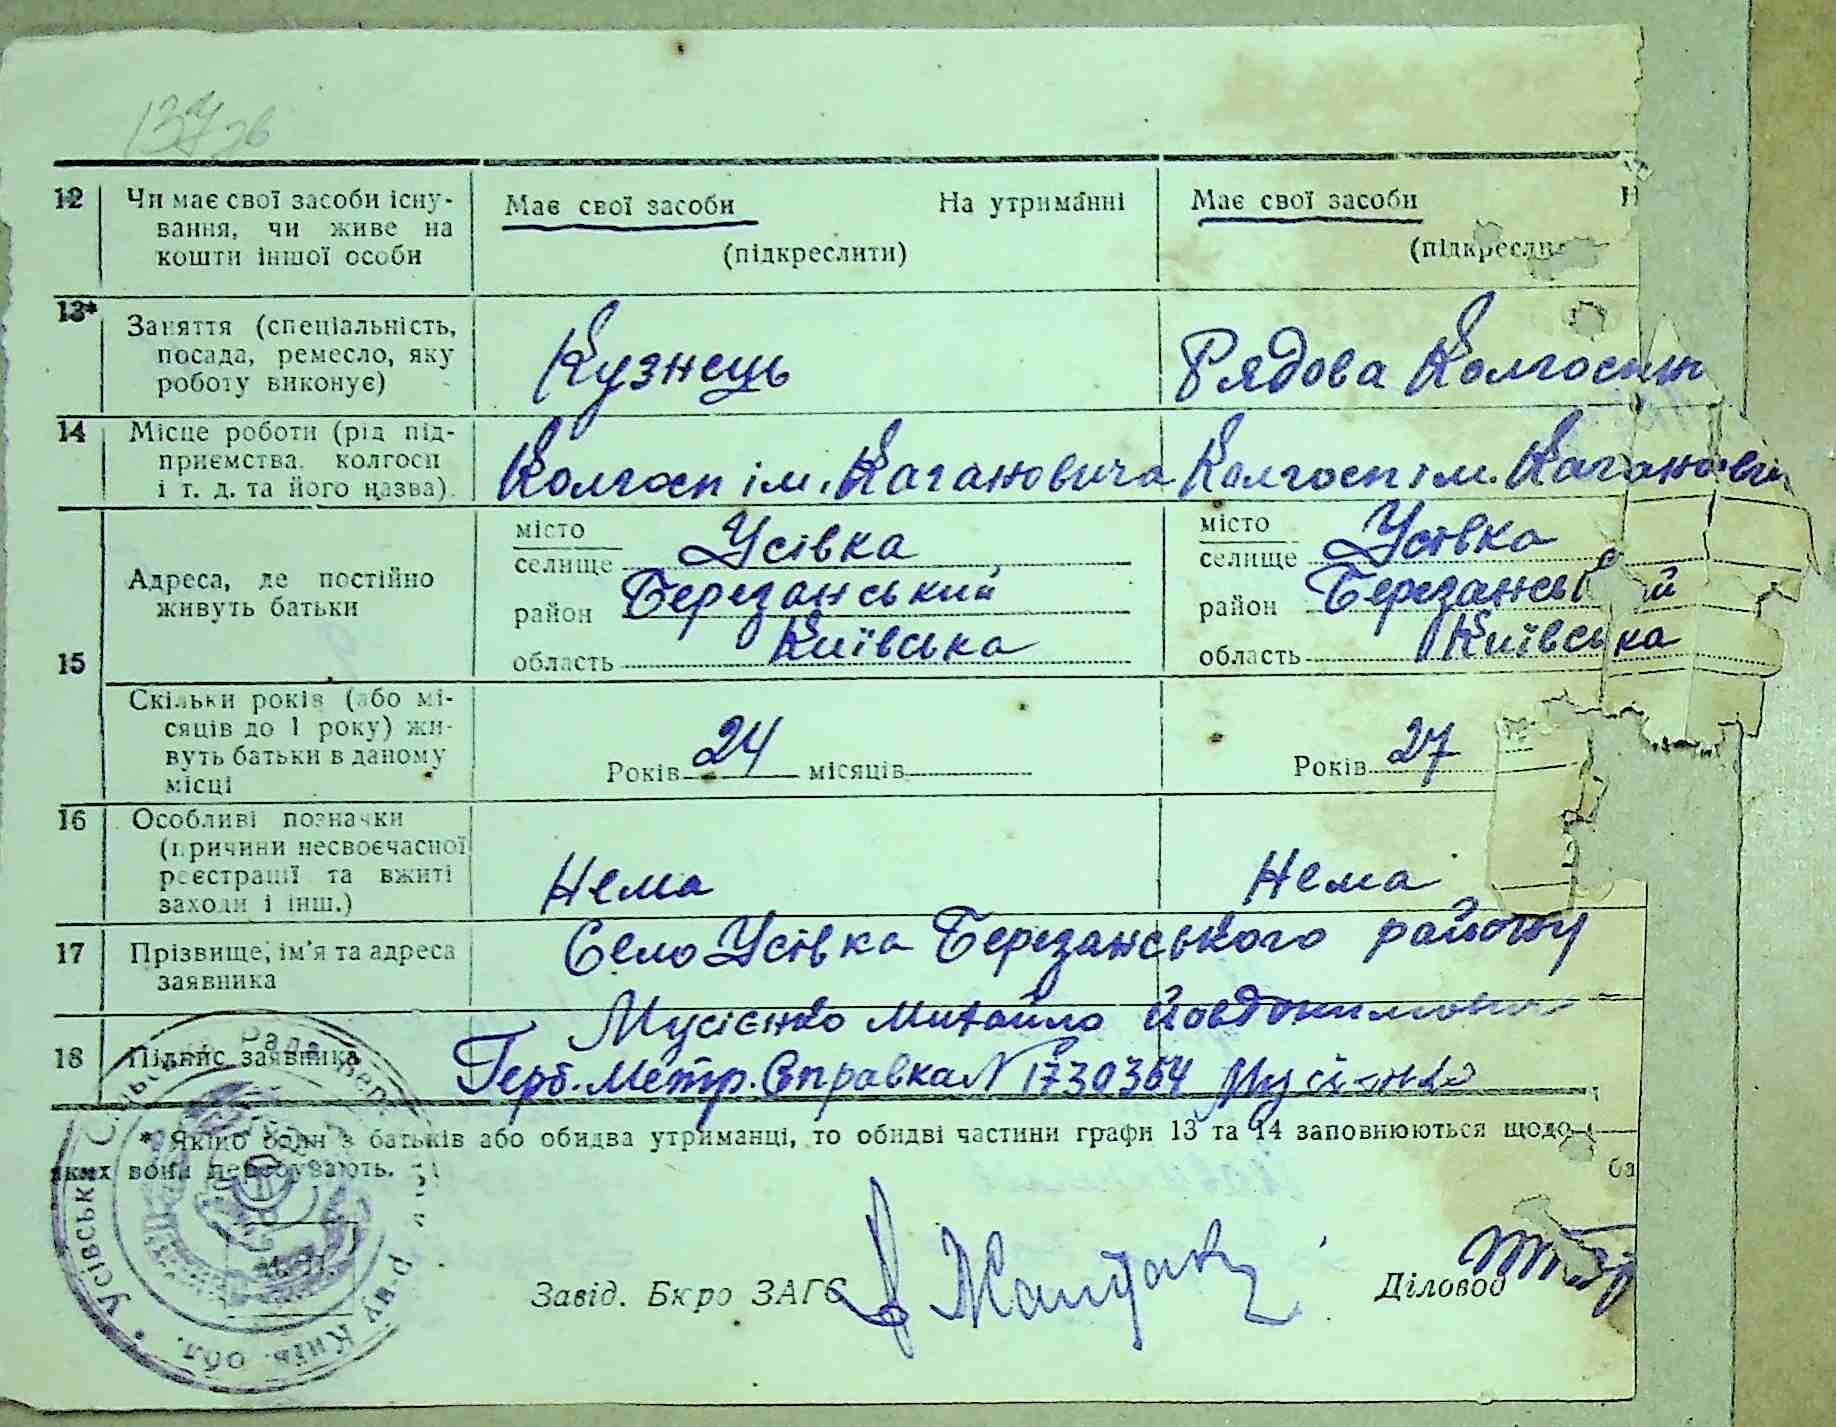 137 зв
12 Чи має свої засоби існу- Має свої засоби На утриманні Має свої засоби Н
вання, чи живе на (підкреслити) (підкресли
кошти іншої особи
13* Заняття (спеціальність, Кузнець Рядова Колгоспн
посада, ремесло, яку
роботу виконує)
14 Місце роботи (рід під- Колгосп ім. Кагановича Колгосп ім. Каганови
приємства, колгосп
і т. д. та його назва)
15 Адреса, де постійно місто Усівка місто Усівка
живуть батьки селище селище
район Березанський район Березанський
область Київська область Київська
Скільки років (або мі-
сяців до 1 року) жи-
вуть батьки в даному Років 24 місяців Років 27
місці
16 Особливі позначки
(причини несвоєчасної
реєстрації та вжиті Нема Нема
заходи і інш.)
17 Прізвище, ім'я та адреса Село Усівка Березанського району
заявника
Мусієнко Михайло Йовдокимович
18 Підпис заявника Герб. Метр. Справка N 1730364 Мусієнко
* Якщо один з батьків або обидва утриманці, то обидві частини графи 13 та 14 заповнюються щодо
яких вони перебувають. ба
Усівська Сільська Рада Бер р-ну Київ. обл.
Завід. Бюро ЗАГС Діловод